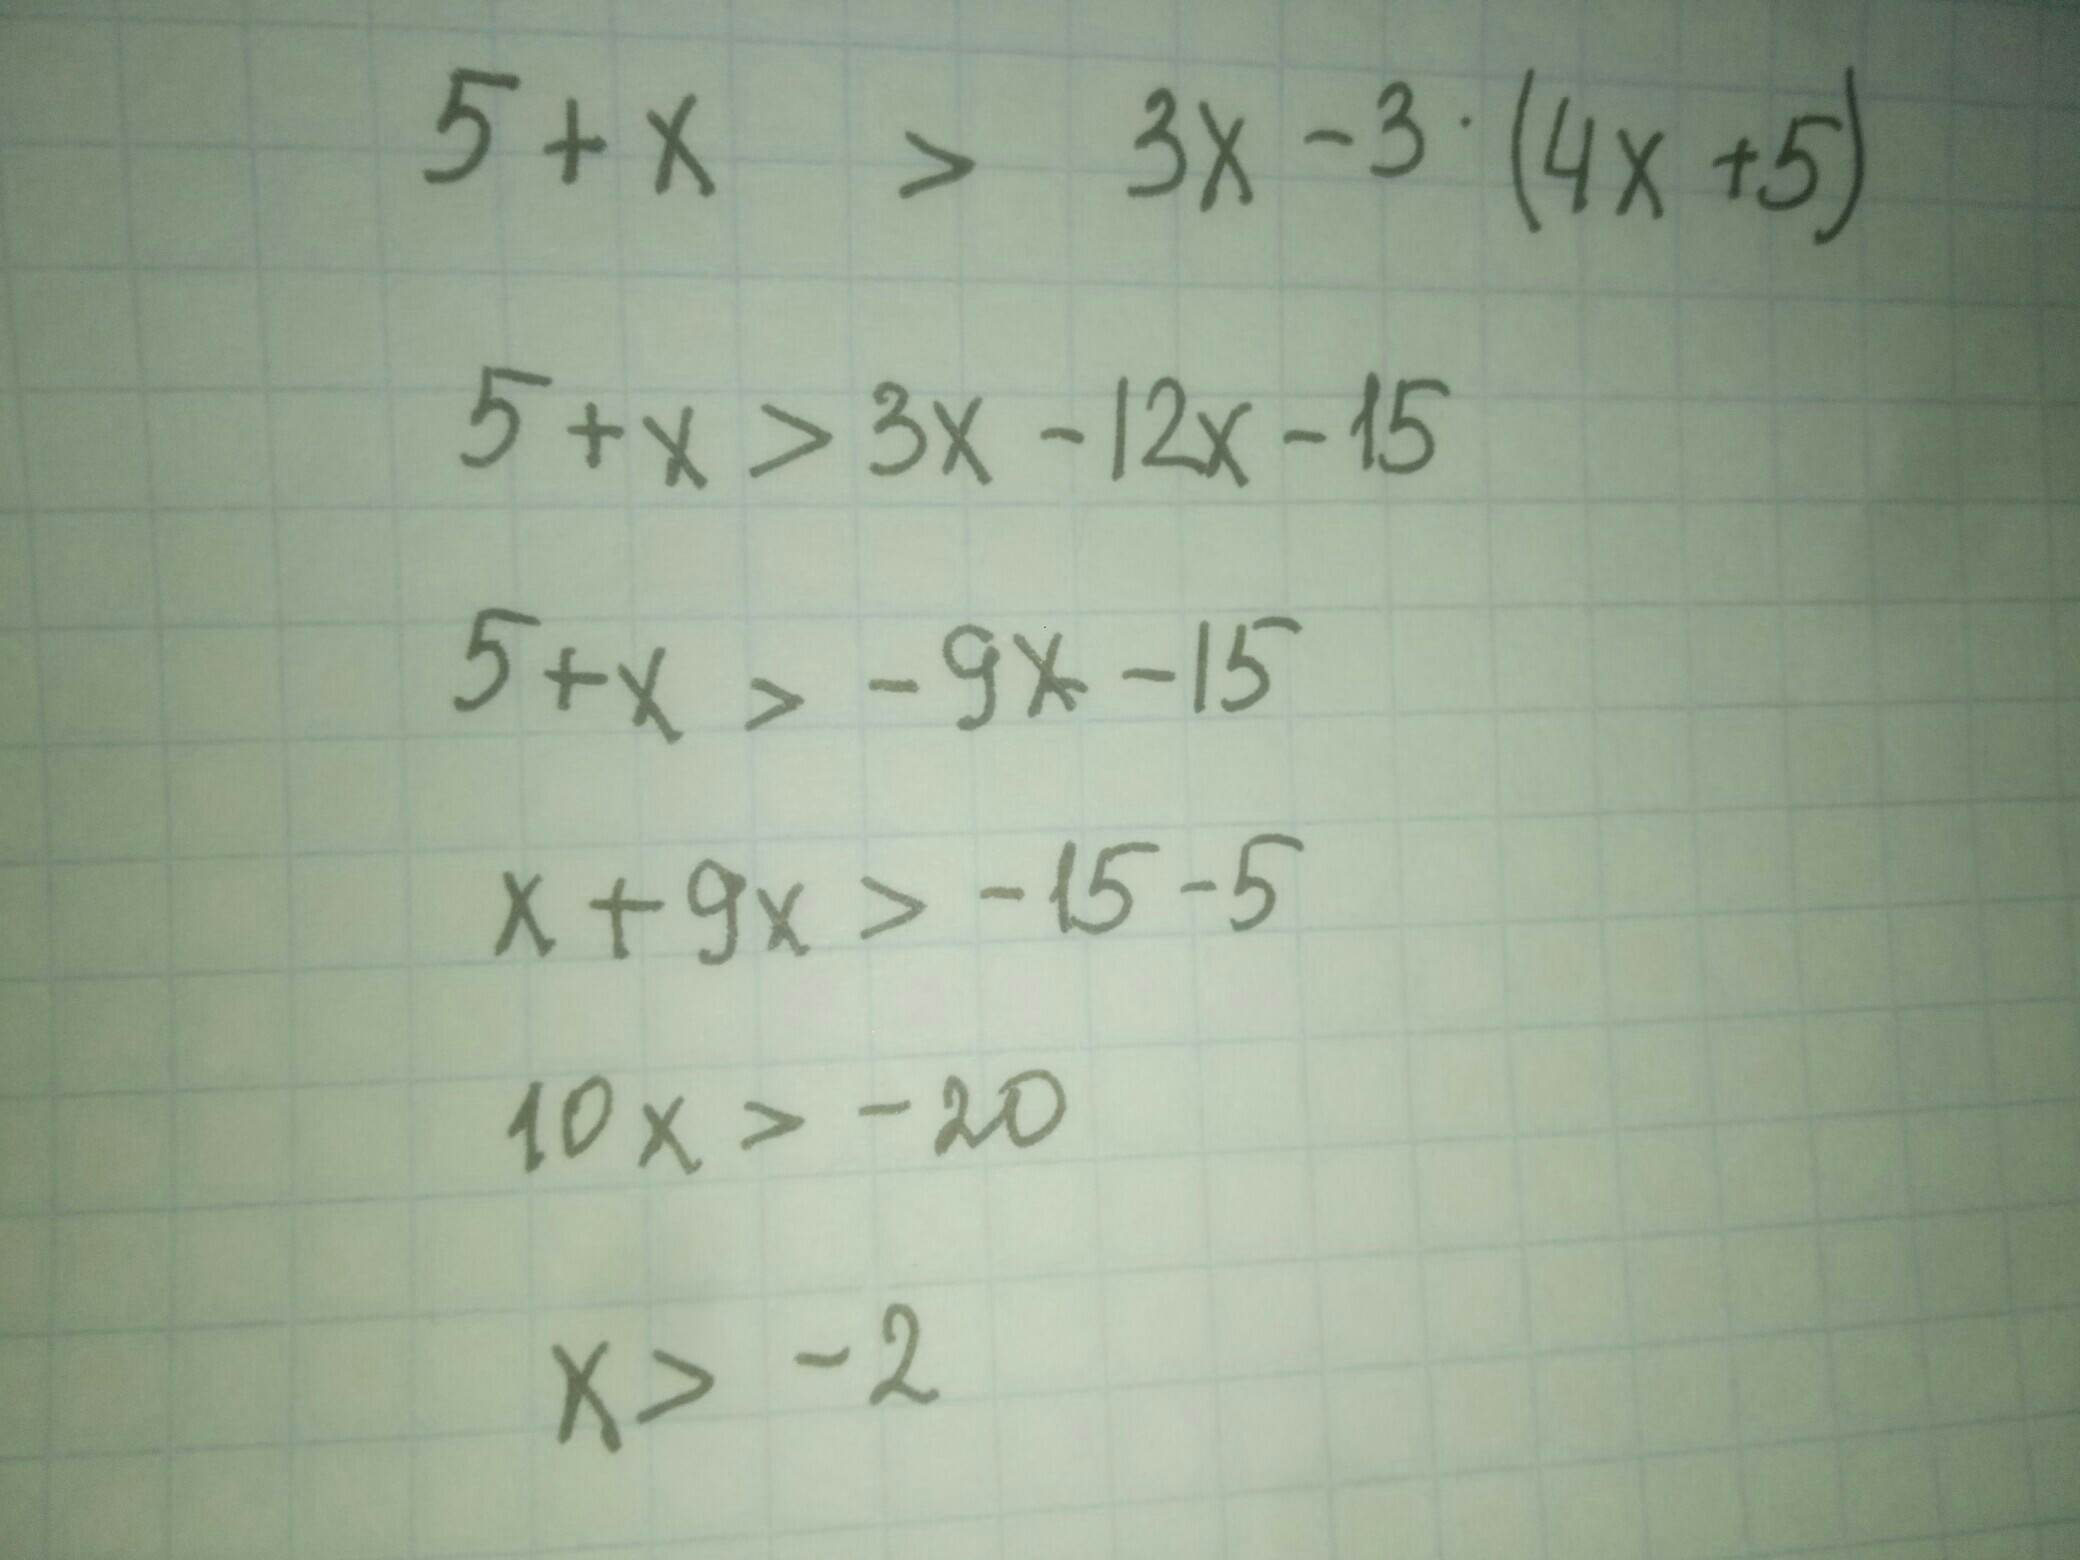 5 + x > 3x - 3 · (4x + 5)
5 + x > 3x - 12x - 15
5 + x > - 9x - 15
x + 9x > - 15 - 5
10x > - 20
x > - 2